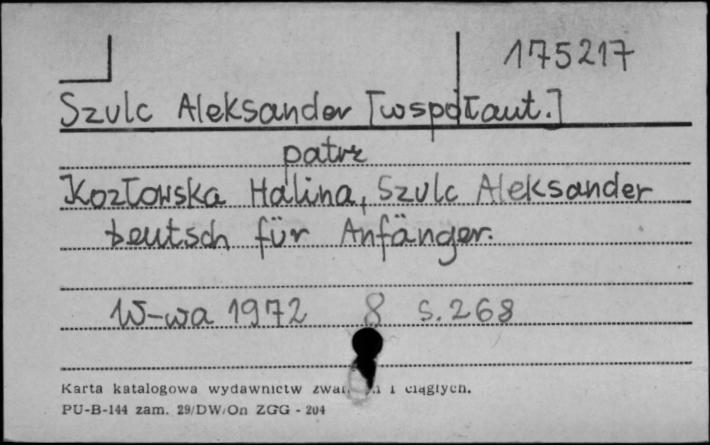 175217
Szulc Aleksander [współaut.]
patrz
Kozłowska Halina, Szulc Aleksander
Deutsch für Anfänger.
W-wa 1972 8 s. 268
Karta katalogowa wydawnictw i ciągłych.
PU-B-144 zam. 29/DW/On ZGG - 204